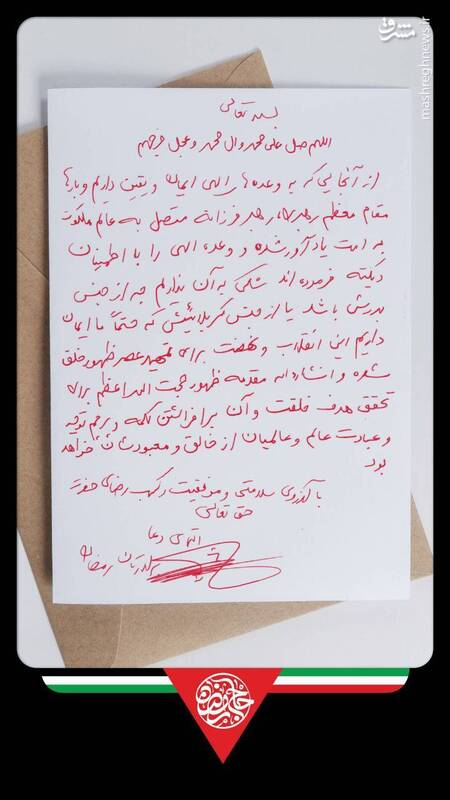 مشرق
mashreghnews.ir
بسمه تعالی
اللهم صل علی محمد وال محمد وعجل فرجهم
از آنجایی که به وعده های الهی ایمان و یقین داریم و بارها
مقام معظم رهبری، رهبر فرزانه متصل به عالم ملکوت
به امت یادآور شده و وعده الهی را با اطمینان
دیکته فرموده اند شکی به آن نداریم چه از جنس
بدرش باشد یا از جنس کربلائیش که حتماً ما ایمان
داریم این انقلاب و نهضت برای تمهید عصر ظهور خلق
شده و انشاءاله مقدمه ظهور حجت اله اعظم برای
تحقق هدف خلقت و آن برافراشتن کلمه و پرچم توحید
و عبادت عالم و عالمیان از خالق و معبودشان خواهد
بود
با آرزوی سلامتی و موفقیت رضای حضرت
حق تعالی
التماس دعا
رمضان
حاج رمضان